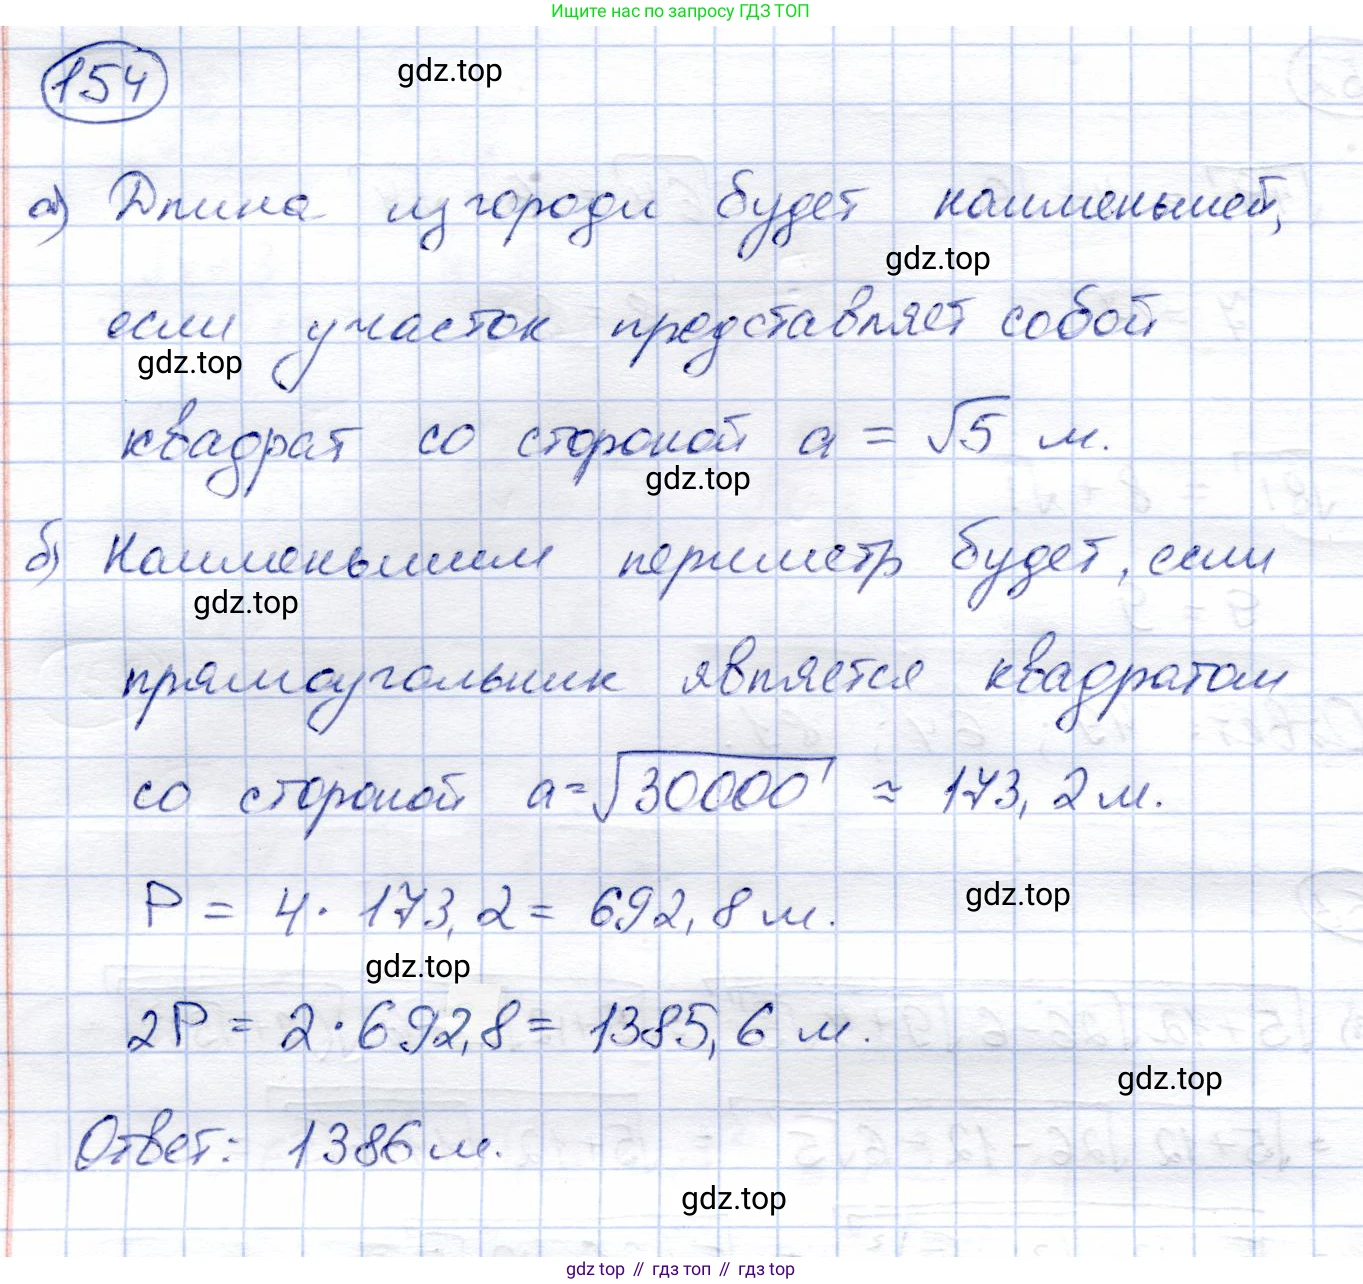 Ищите нас по запросу ГДЗ ТОП
154
gdz.top
а) Длина изгороди будет наименьшей,
gdz.top
если участок представляет собой
gdz.top
квадрат со стороной a = √5 м.
gdz.top
б) Наименьшим периметр будет, если
gdz.top
прямоугольник является квадратом
со стороной a = √30000 ≈ 173,2 м.
P = 4 · 173,2 = 692,8 м.
gdz.top
gdz.top
2P = 2 · 692,8 = 1385,6 м.
gdz.top
Ответ: 1386 м.
gdz.top
gdz top // гдз топ // gdz top